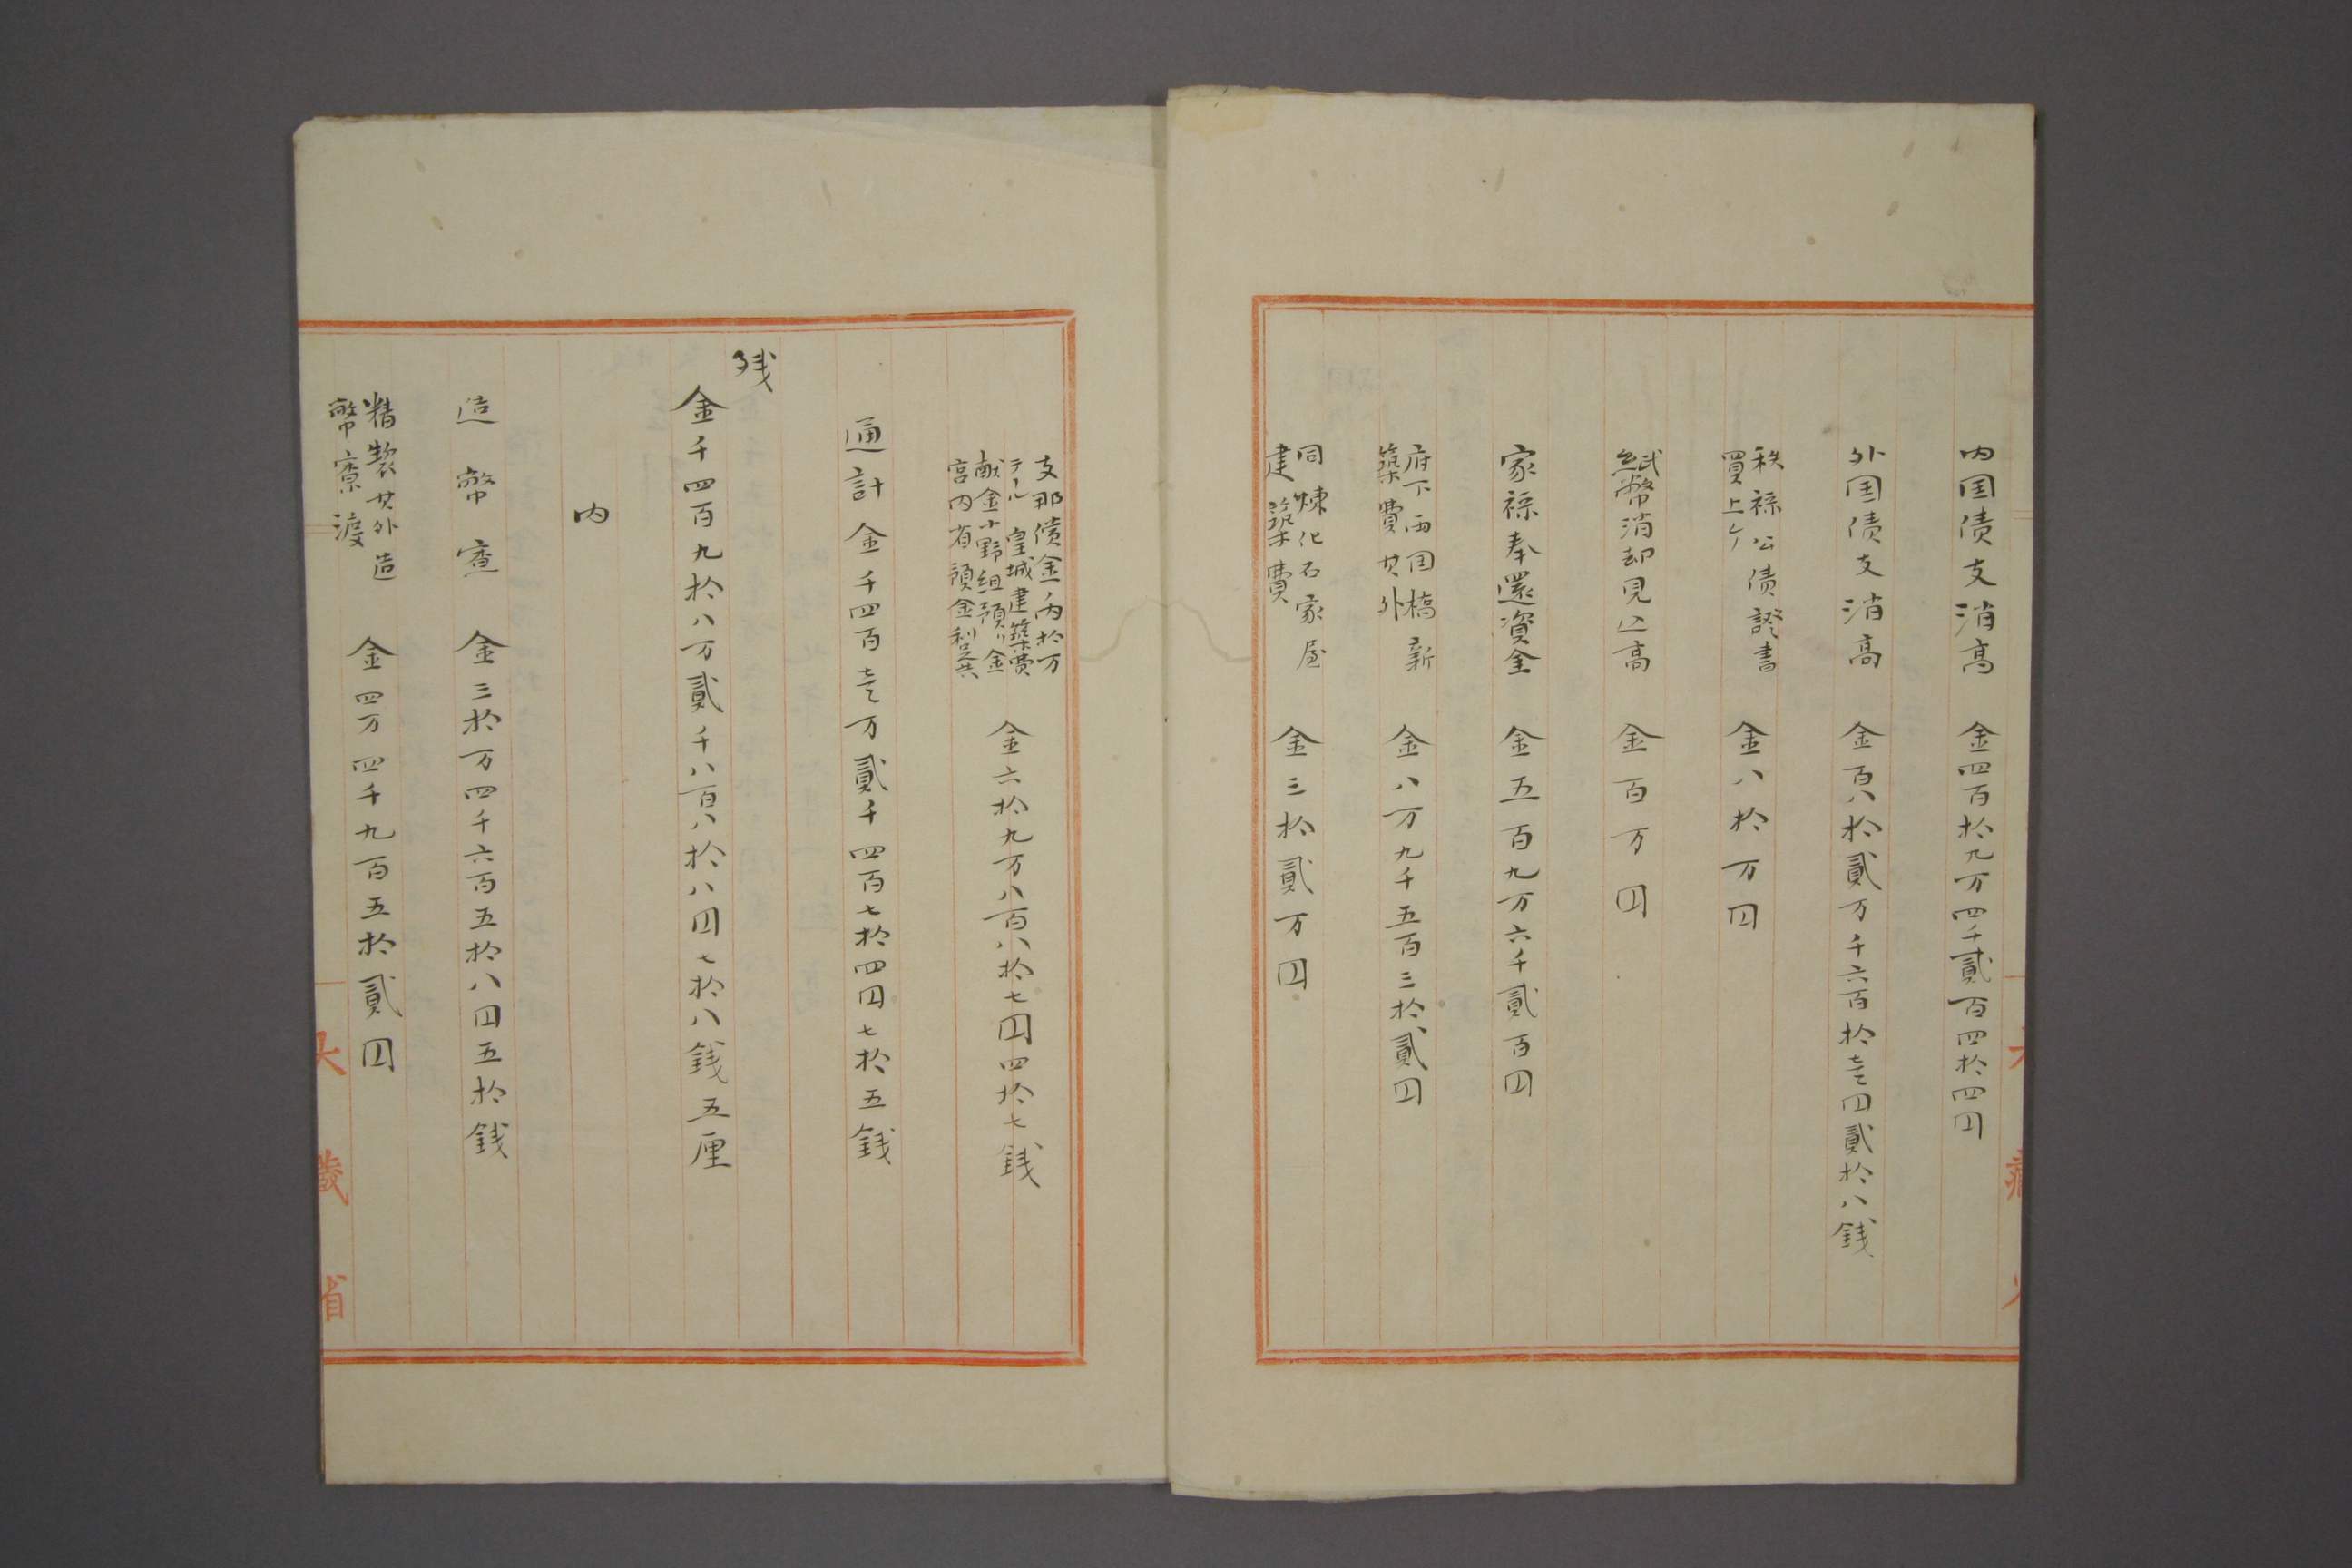 内国債支消高 金四百拾九万四千貳百四拾四円
外国債支消高 金百八拾貳万千六百拾壱円貳拾八銭
秩禄公債證書
買上ケ 金八拾万円
紙幣消却見込高 金百万円
家禄奉還資金 金五百九万六千貳百円
府下両国橋新
築費其外 金八万九千五百三拾貳円
同煉化石家屋
建築費 金三拾貳万円
支那償金ノ内拾万
テール 皇城建築費
献金小野組預リ金
宮内省預金利共 金六拾九万八百八拾七円四拾七銭
通計金千四百壱万貳千四百七拾四円七拾五銭
残
金千四百九拾八万貳千八百八拾八円七拾八銭五厘
内
造幣寮 金三拾万四千六百五拾八円五拾銭
精製其外造
幣寮渡 金四万四千九百五拾貳円
大藏省